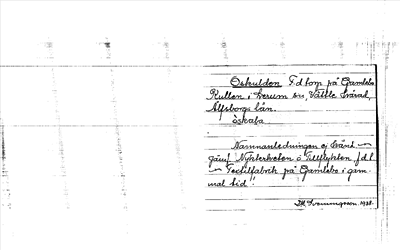 Oskulden F d torp på Gamlebo
Kullen i Lerum sn, Vättle härad,
Älfsborgs län.
òskaƚa
Namnanledningen ej känd. –
Jämf Nykterheten o Tillflykten f d l
– Textilfabrik på Gamlebo i gam-
mal tid!
1938.